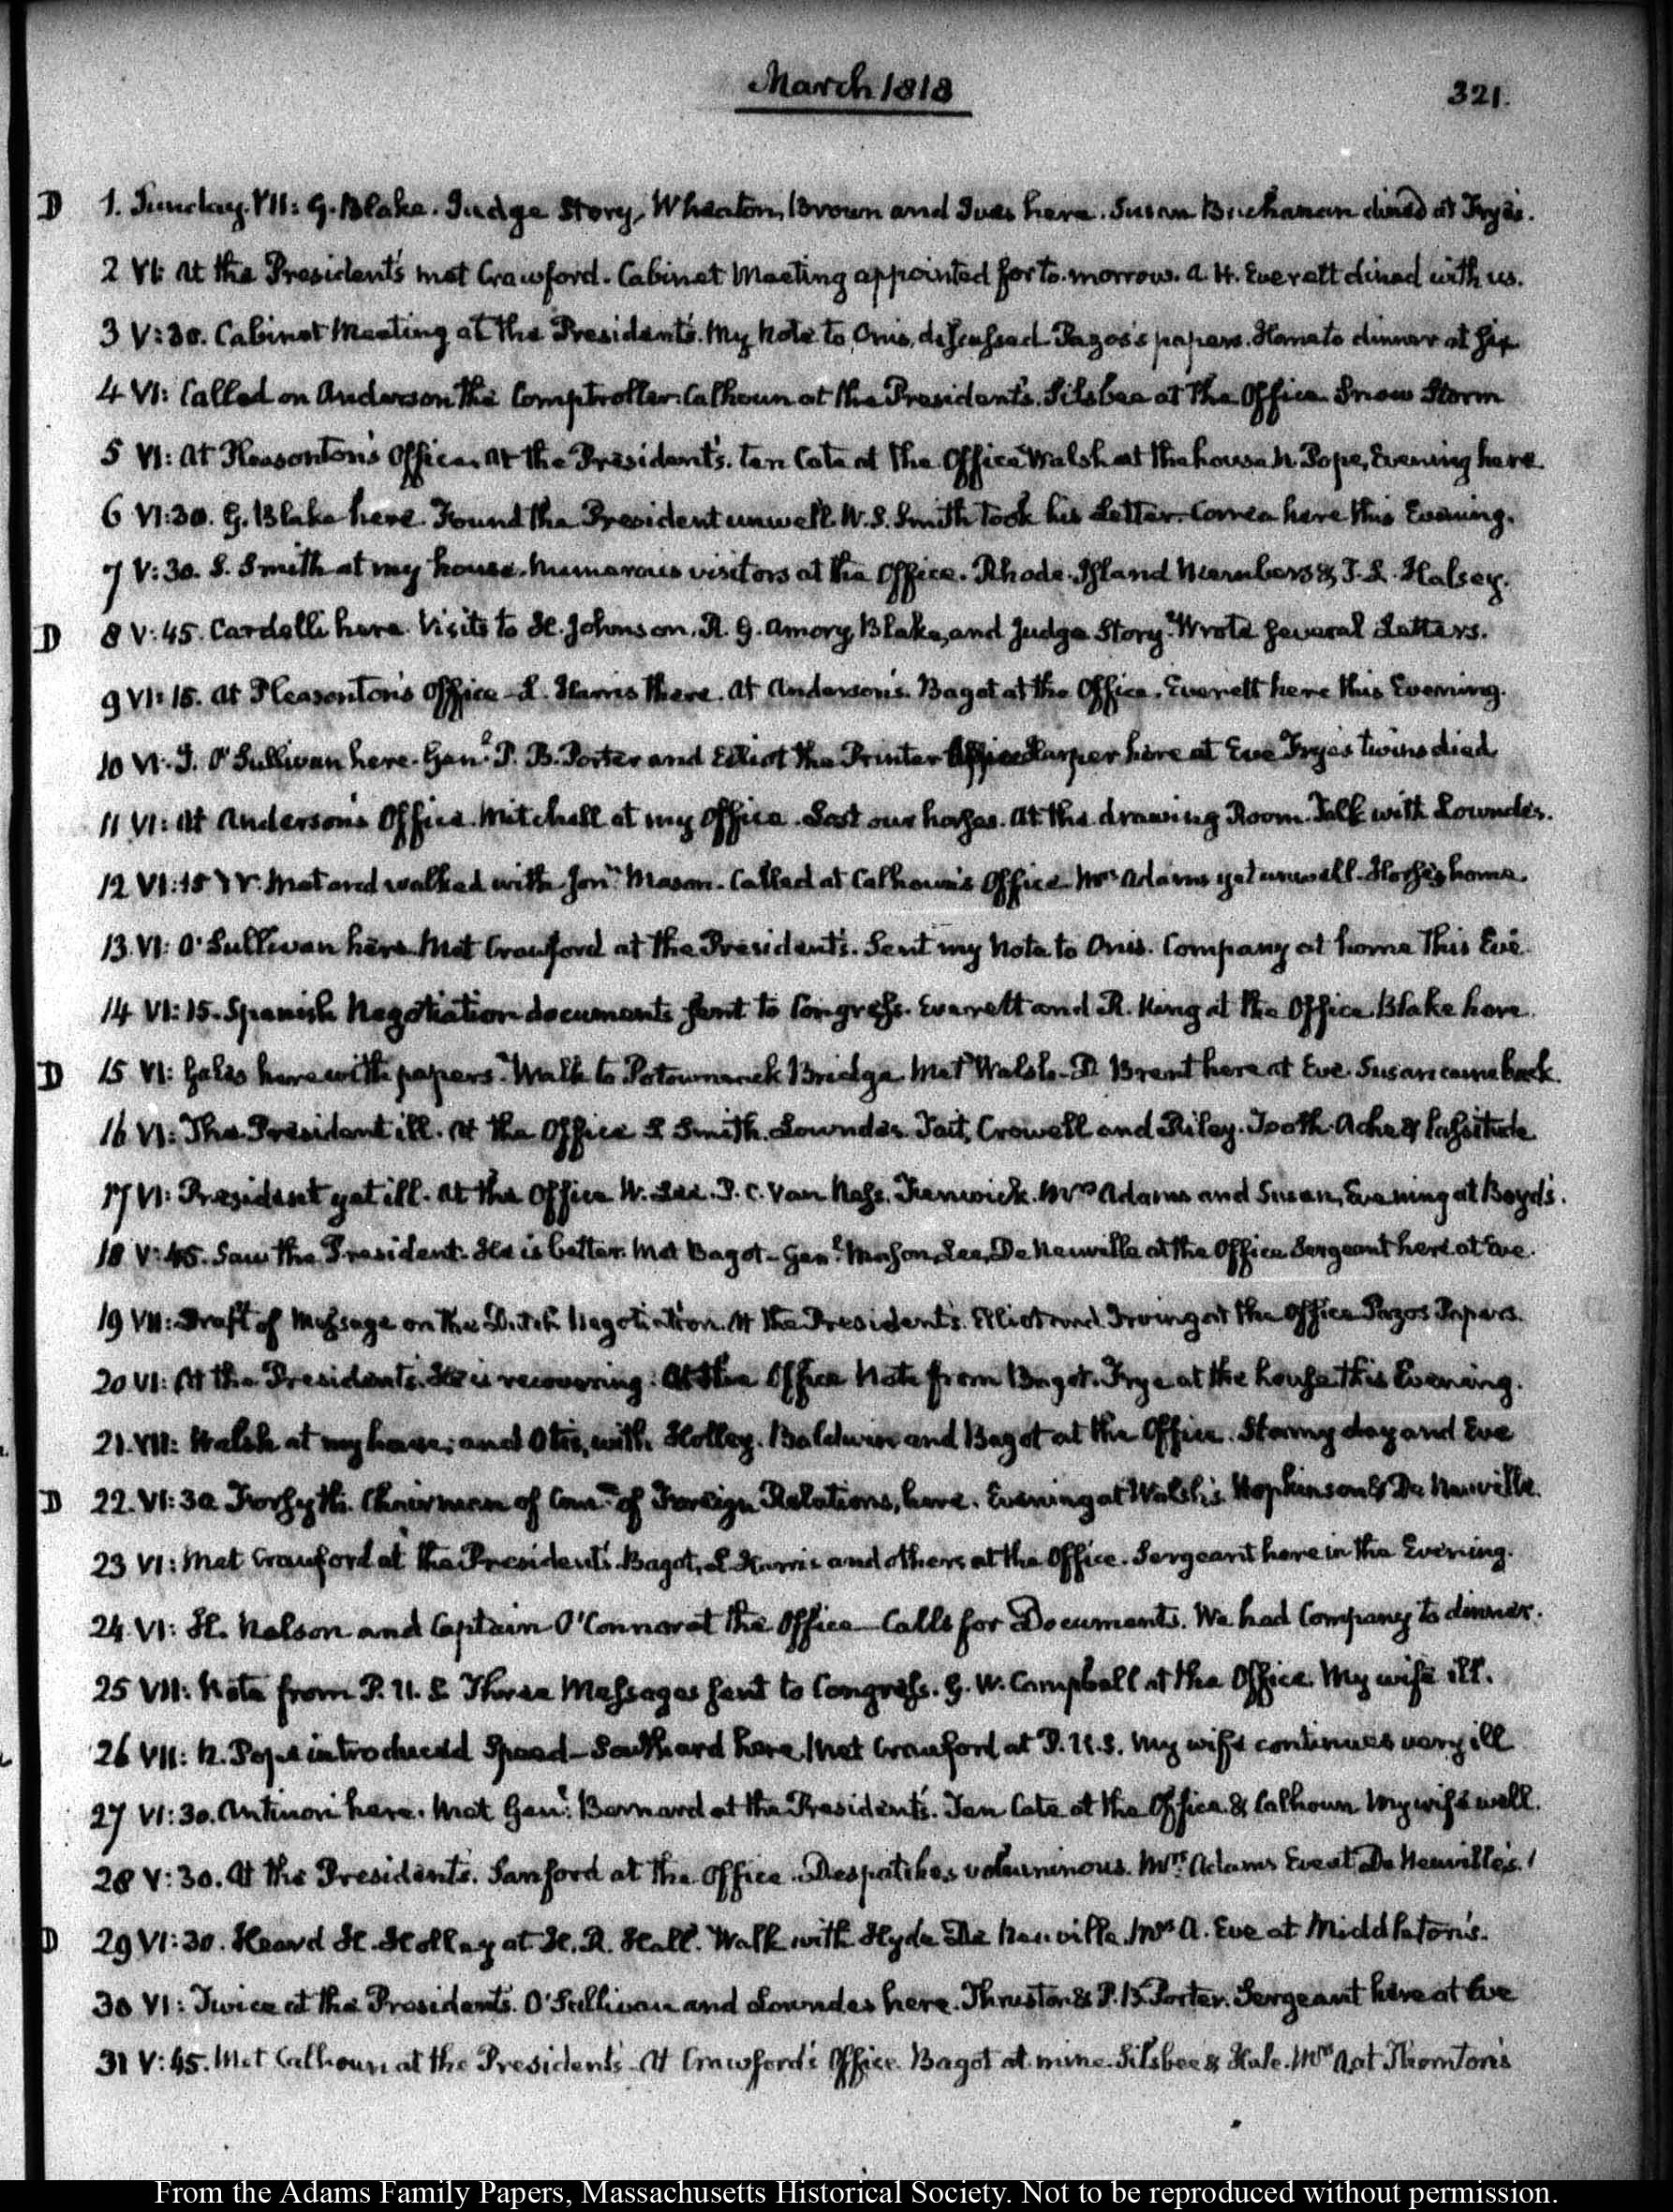 March 1818
321.
D 1. Sunday. VII: G. Blake. Judge Story, Wheaton, Brown and Ives here. Susan Buchanan dined at Frye's.
2 VI: At the President's met Crawford. Cabinet Meeting appointed for to-morrow. A. H. Everett dined with us.
3 V:30. Cabinet Meeting at the President's. My Note to Onis, discussed. Pazos's papers. Home to dinner at six
4 VI: Called on Anderson the Comptroller. Calhoun at the President's. Silsbee at the Office. Snow Storm
5 VI: At Pleasonton's Office. At the President's. Ten Cate at the Office Walsh at the house N. Pope, Evening here
6 VI:30. G. Blake here. Found the President unwell. W. S. Smith took his Letter. Correa here this Evening.
7 V:30. S. Smith at my house. Numerous visitors at the Office. Rhode-Island Members & T. L. Halsey.
D 8 V:45. Cardelli here. Visits to H. Johnson. R. G. Amory, Blake, and Judge Story. Wrote several Letters.
9 VI:15. At Pleasonton's Office - L. Harris there. At Anderson's. Bagot at the Office. Everett here this Evening.
10 VI. J. O'Sullivan here. Genl. P. B. Porter and Elliot the Printer Harper here at Eve Frye's twins died
11 VI: At Anderson's Office. Mitchell at my Office. Lost our horses. At the drawing Room. Talk with Lowndes.
12 VI:15 Met and walked with Jonn. Mason. Called at Calhoun's Office. Mrs Adams yet unwell. Horses home.
13. VI: O'Sullivan here. Met Crawford at the President's. Sent my Note to Onis. Company at home this Eve.
14 VI:15. Spanish Negotiation documents sent to Congress. Everett and R. King at the Office. Blake here.
D 15 VI: Gales here with papers. Walk to Potowmack Bridge. Met Walsh - D. Brent here at Eve. Susan came back.
16 VI: The President ill. At the Office S Smith. Lowndes. Tait, Crowell and Riley. Tooth-Ache & lassitude
17 VI: President yet ill. At the Office W. Lee. J. C. Van Ness. Fenwick. Mrs Adams and Susan, Evening at Boyd's.
18 V:45. Saw the President. He is better. Met Bagot - Genl. Mason, Lee, De Neuville at the Office Sergeant here at Eve.
19 VII: Draft of Message on the Dutch Negotiation. At the President's. Elliot and Irving at the Office Pazos Papers.
20 VI: At the President's. He is recovering. At the Office Note from Bagot. Frye at the house this Evening.
21. VII: Walsh at my house; and Otis, with Holley. Baldwin and Bagot at the Office. Stormy day and Eve
D 22. VI:30 Forsyth. Chairman of Comee. of Foreign Relations, here. Evening at Walsh's. Hopkinson & De Neuville.
23 VI: Met Crawford at the President's. Bagot, L. Harris and others at the Office. Sergeant here in the Evening.
24 VI: H. Nelson and Captain O'Connor at the Office - Calls for Documents. We had Company to dinner.
25 VII: Note from P. U. S. Three Messages sent to Congress. G. W. Campbell at the Office. My wife ill.
26 VII: N. Pope introduced Speed - Southard here. Met Crawford at P. U. S. My wife continues very ill
27 VI:30. Antinori here. Met Genl: Bernard at the President's. Ten Cate at the Office. & Calhoun My wife well.
28 V:30. At the President's. Sanford at the Office. Despatches voluminous. Mrs. Adams Eve at De Neuville's.
D 29 VI:30. Heard H. Holley at H. R. Hall. Walk with Hyde De Neuville. Mrs A. Eve at Middleton's.
30 VI: Twice at the President's. O'Sullivan and Lowndes here. Thruston & P. B. Porter. Sergeant here at Eve
31 V:45. Met Calhoun at the President's. At Crawford's Office. Bagot at mine. Silsbee & Hale. Mrs A at Thornton's
From the Adams Family Papers, Massachusetts Historical Society. Not to be reproduced without permission.